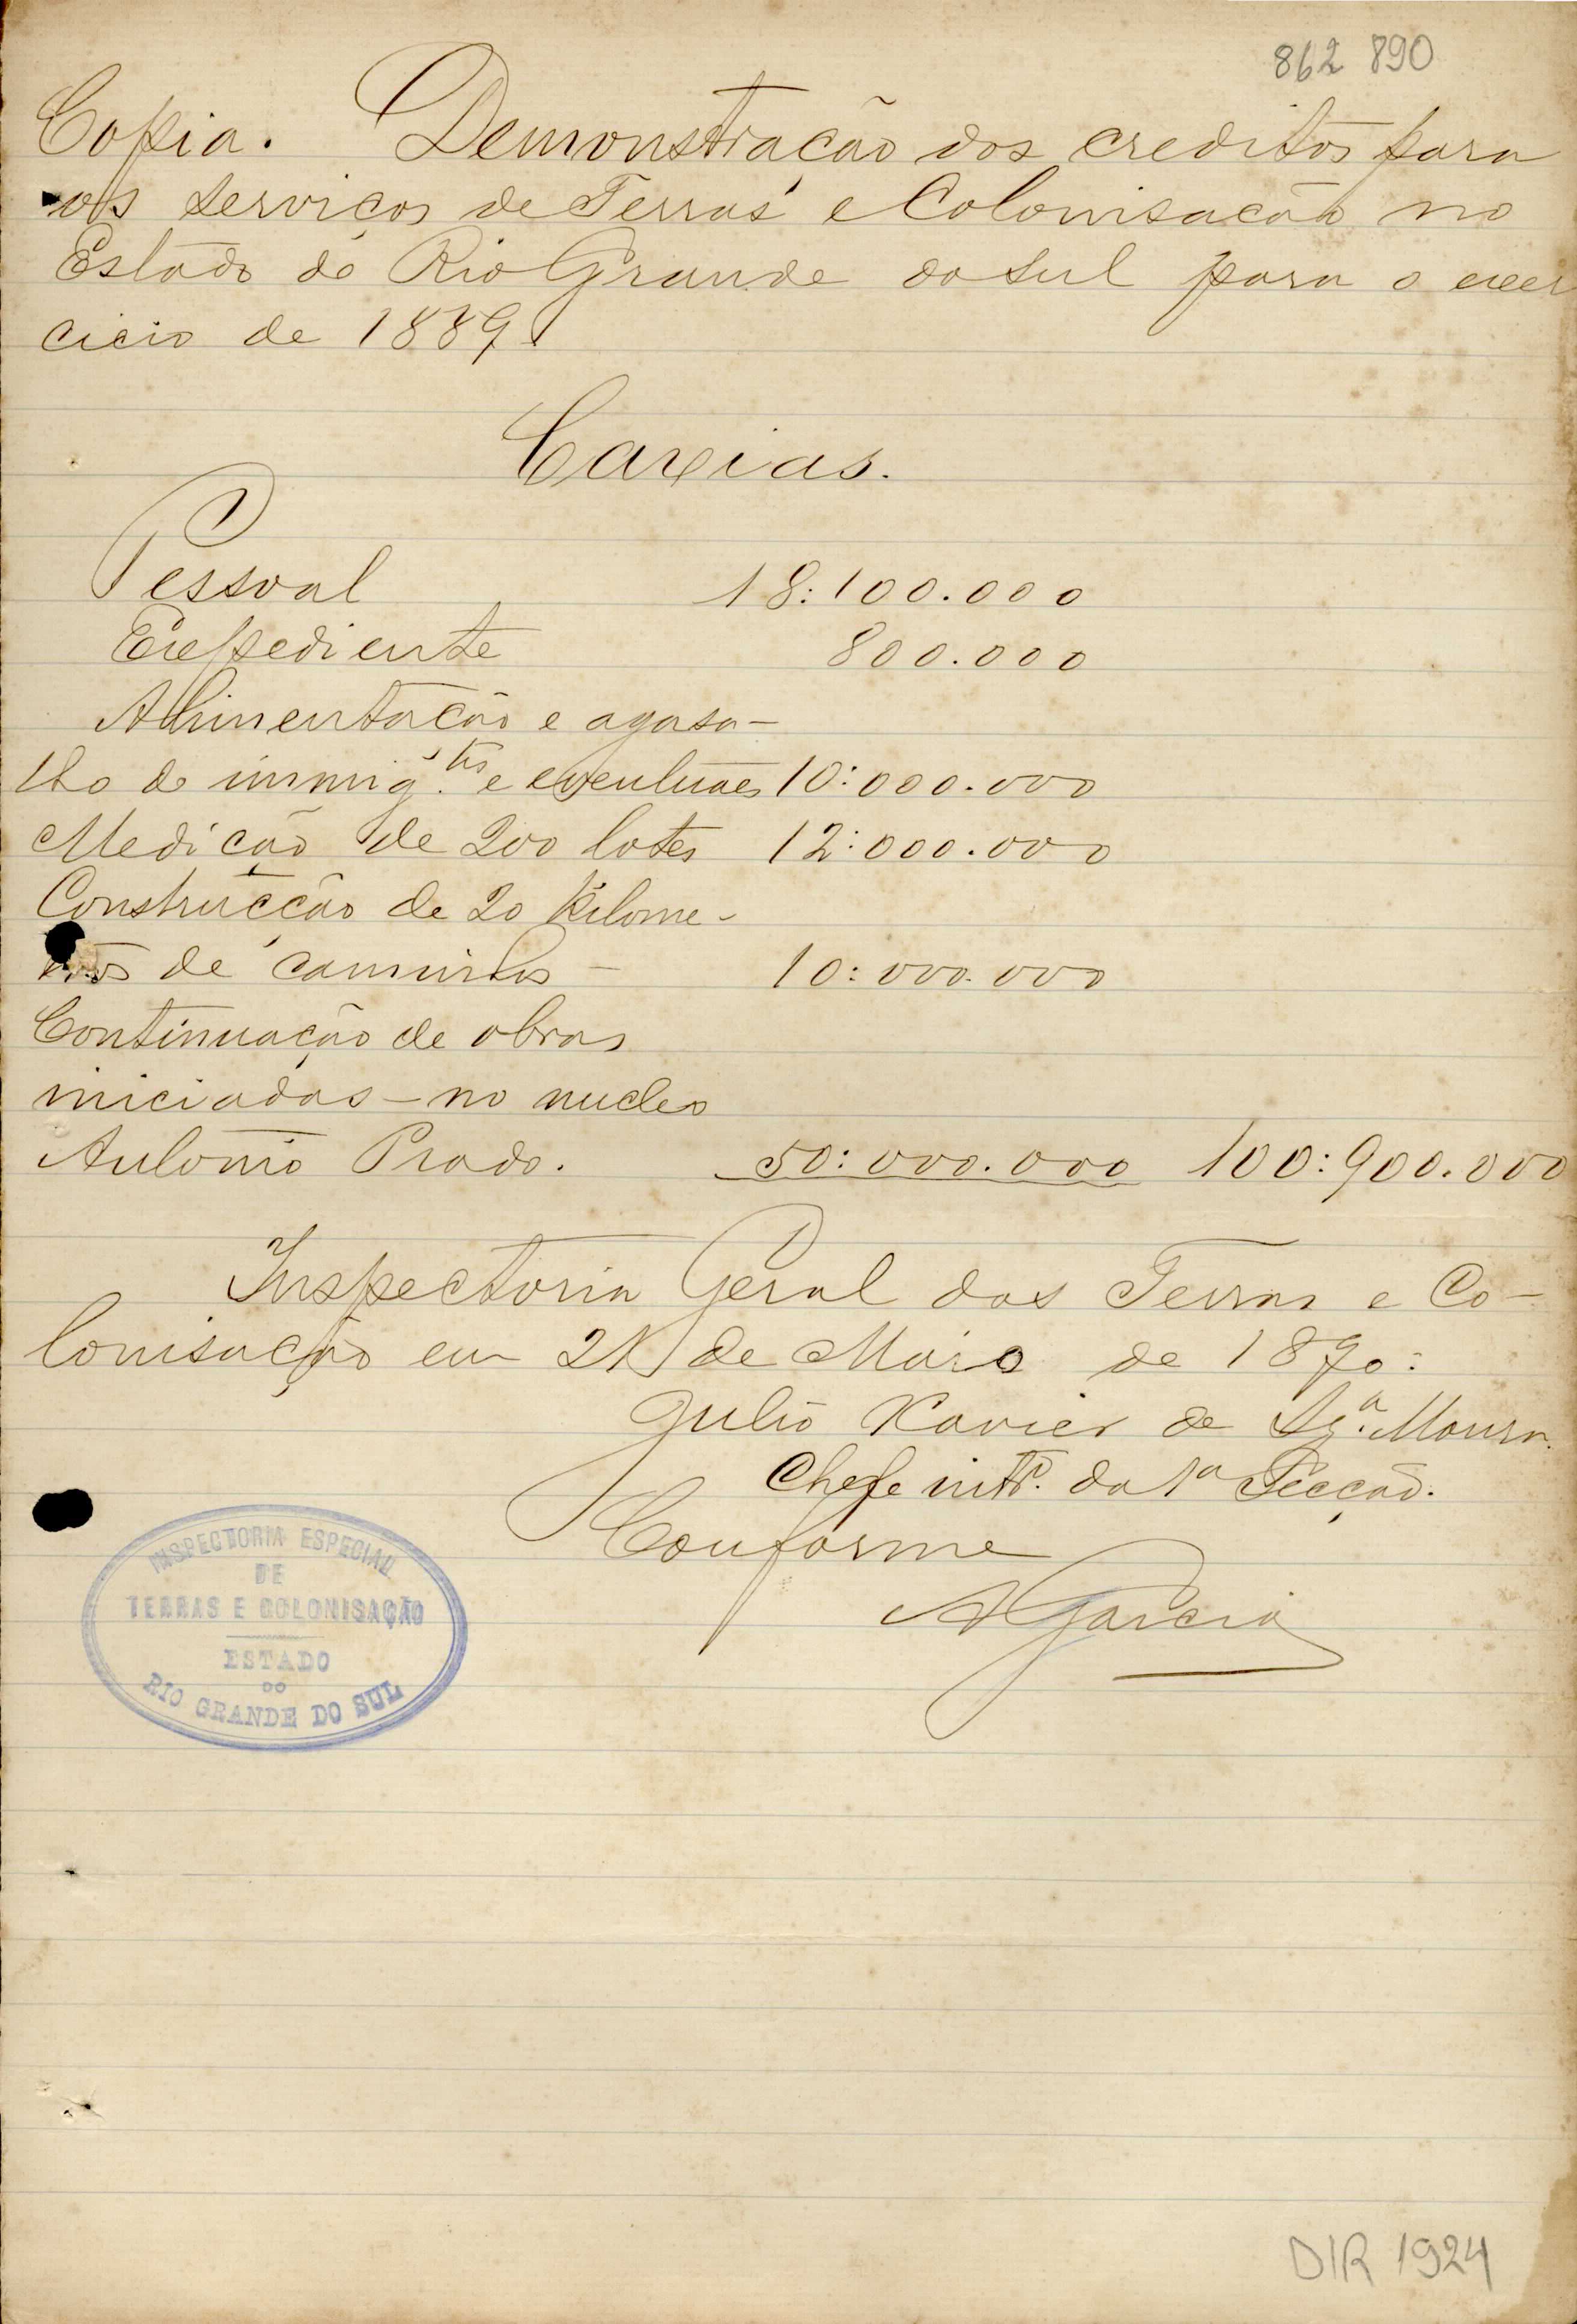 862 890
Copia. Demonstração dos creditos para
os serviços de Terras e Colonisação no
Estado do Rio Grande do Sul para o exer
cicio de 1889.
Caxias.
Pessoal 18:100.000
Expediente 800.000
Alimentação e agasa-
lho de immig.tes e eventuaes 10:000.000
Medição de 200 lotes 12:000.000
Construcção de 20 kilome-
tros de caminhos - 10:000.000
Continuação de obras
iniciadas - no nucleo
Antonio Prado. 50:000.000 100:900.000
Inspectoria Geral das Terras e Co-
lonisação em de Maio de 1890.
Julio Xavier de Sª. Moura.
Chefe intº. da 1ª Secção.
Conforme
AGarcia
INSPECTORIA ESPECIAL
DE
TERRAS E COLONISAÇÃO
ESTADO
DO
RIO GRANDE DO SUL
DIR 1924